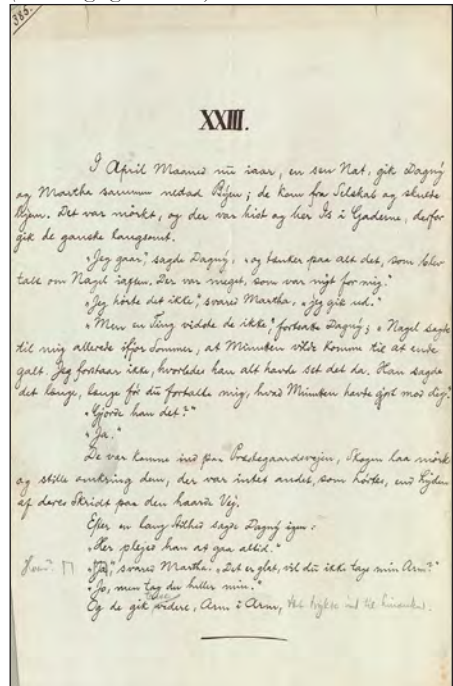 385.
XXIII.
I April Maaned nu iaar, en sen Nat, gik Dagny
og Martha sammen nedad Byen; de kom fra Selskab og skulde
hjem. Det var mörkt, og der var hist og her Is i Gaderne, derfor
gik de ganske langsomt.
„Jeg gaar", sagde Dagny, „og tænker paa alt det, som blev
talt om Nagel iaften. Der var meget, som var nyt for mig."
„Jeg hørte det ikke", svared Martha, „jeg gik ud."
„Men en Ting vidste de ikke", fortsatte Dagny; „Nagel sagde
til mig allerede ifjor Sommer, at Minutten vilde komme til at ende
galt. Jeg forstaar ikke, hvorledes han alt havde set det da. Han sagde
det længe, længe för du fortalte mig, hvad Minutten havde gjort mod dig."
„Gjorde han det?"
„Ja."
De var komne ind paa Præstegaardsvejen, Skogen laa mörk
og stille omkring dem, der var intet andet, som hørtes, end Lyden
af deres Skridt paa den haarde Vej.
Efter en lang Stilhed sagde Dagny igen:
„Her plejed han at gaa altid."
Hvem? „Ja," svared Martha. „Det er glat, vil du ikke tage min Arm?"
„Jo, men tag du heller min."
Og de gik videre, Arm i Arm, tæt trykket ind til hinanden.